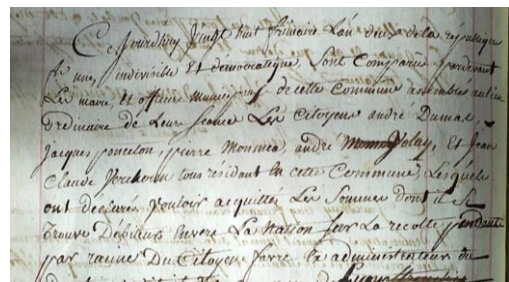 Cejourdhuy Vingt huit frimaire L'an deux de la republique
une, indivisible Et democratique, Sont Comparus pardevant
Les maire, et officiers municipaux de cette Commune assemblés au lieu
Ordinaire de Leur seance Les Citoyens andré Dumas
Jacques poncelon, pierre Monmea, andré Jolay, Et Jean
Claude Percheron tous résidant En cette Commune, Lesquels
ont declarés vouloir acquitté Les Sommes dont il se
trouve Debiteurs Envers La Nation sur La recolte pendante
par racine Du Citoyen favre Ex administrateur du